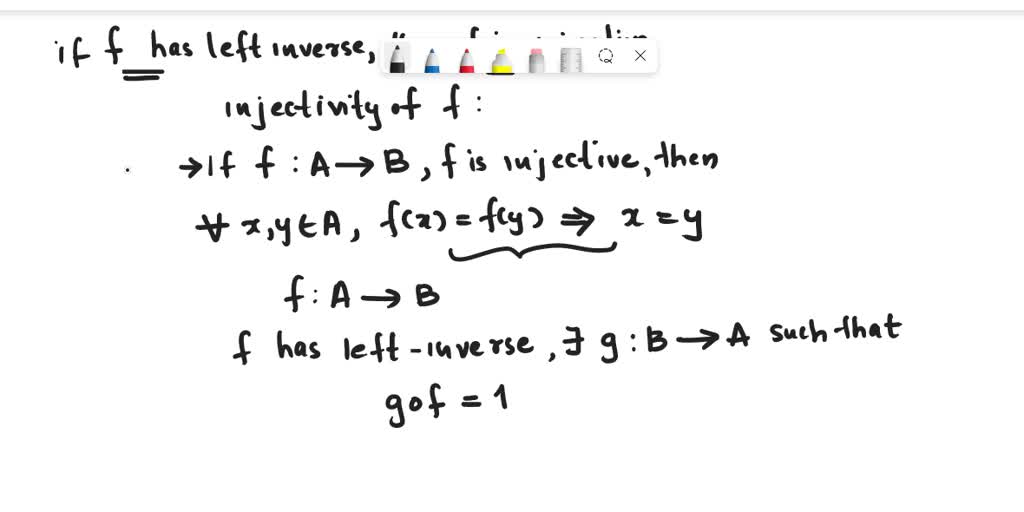 if f has left inverse,
injectivity of f :
→ If f : A → B , f is injective, then
∀ x,y ∈ A , f(x) = f(y) ⇒ x = y
f : A → B
f has left-inverse , ∃ g : B → A such that
gof = 1